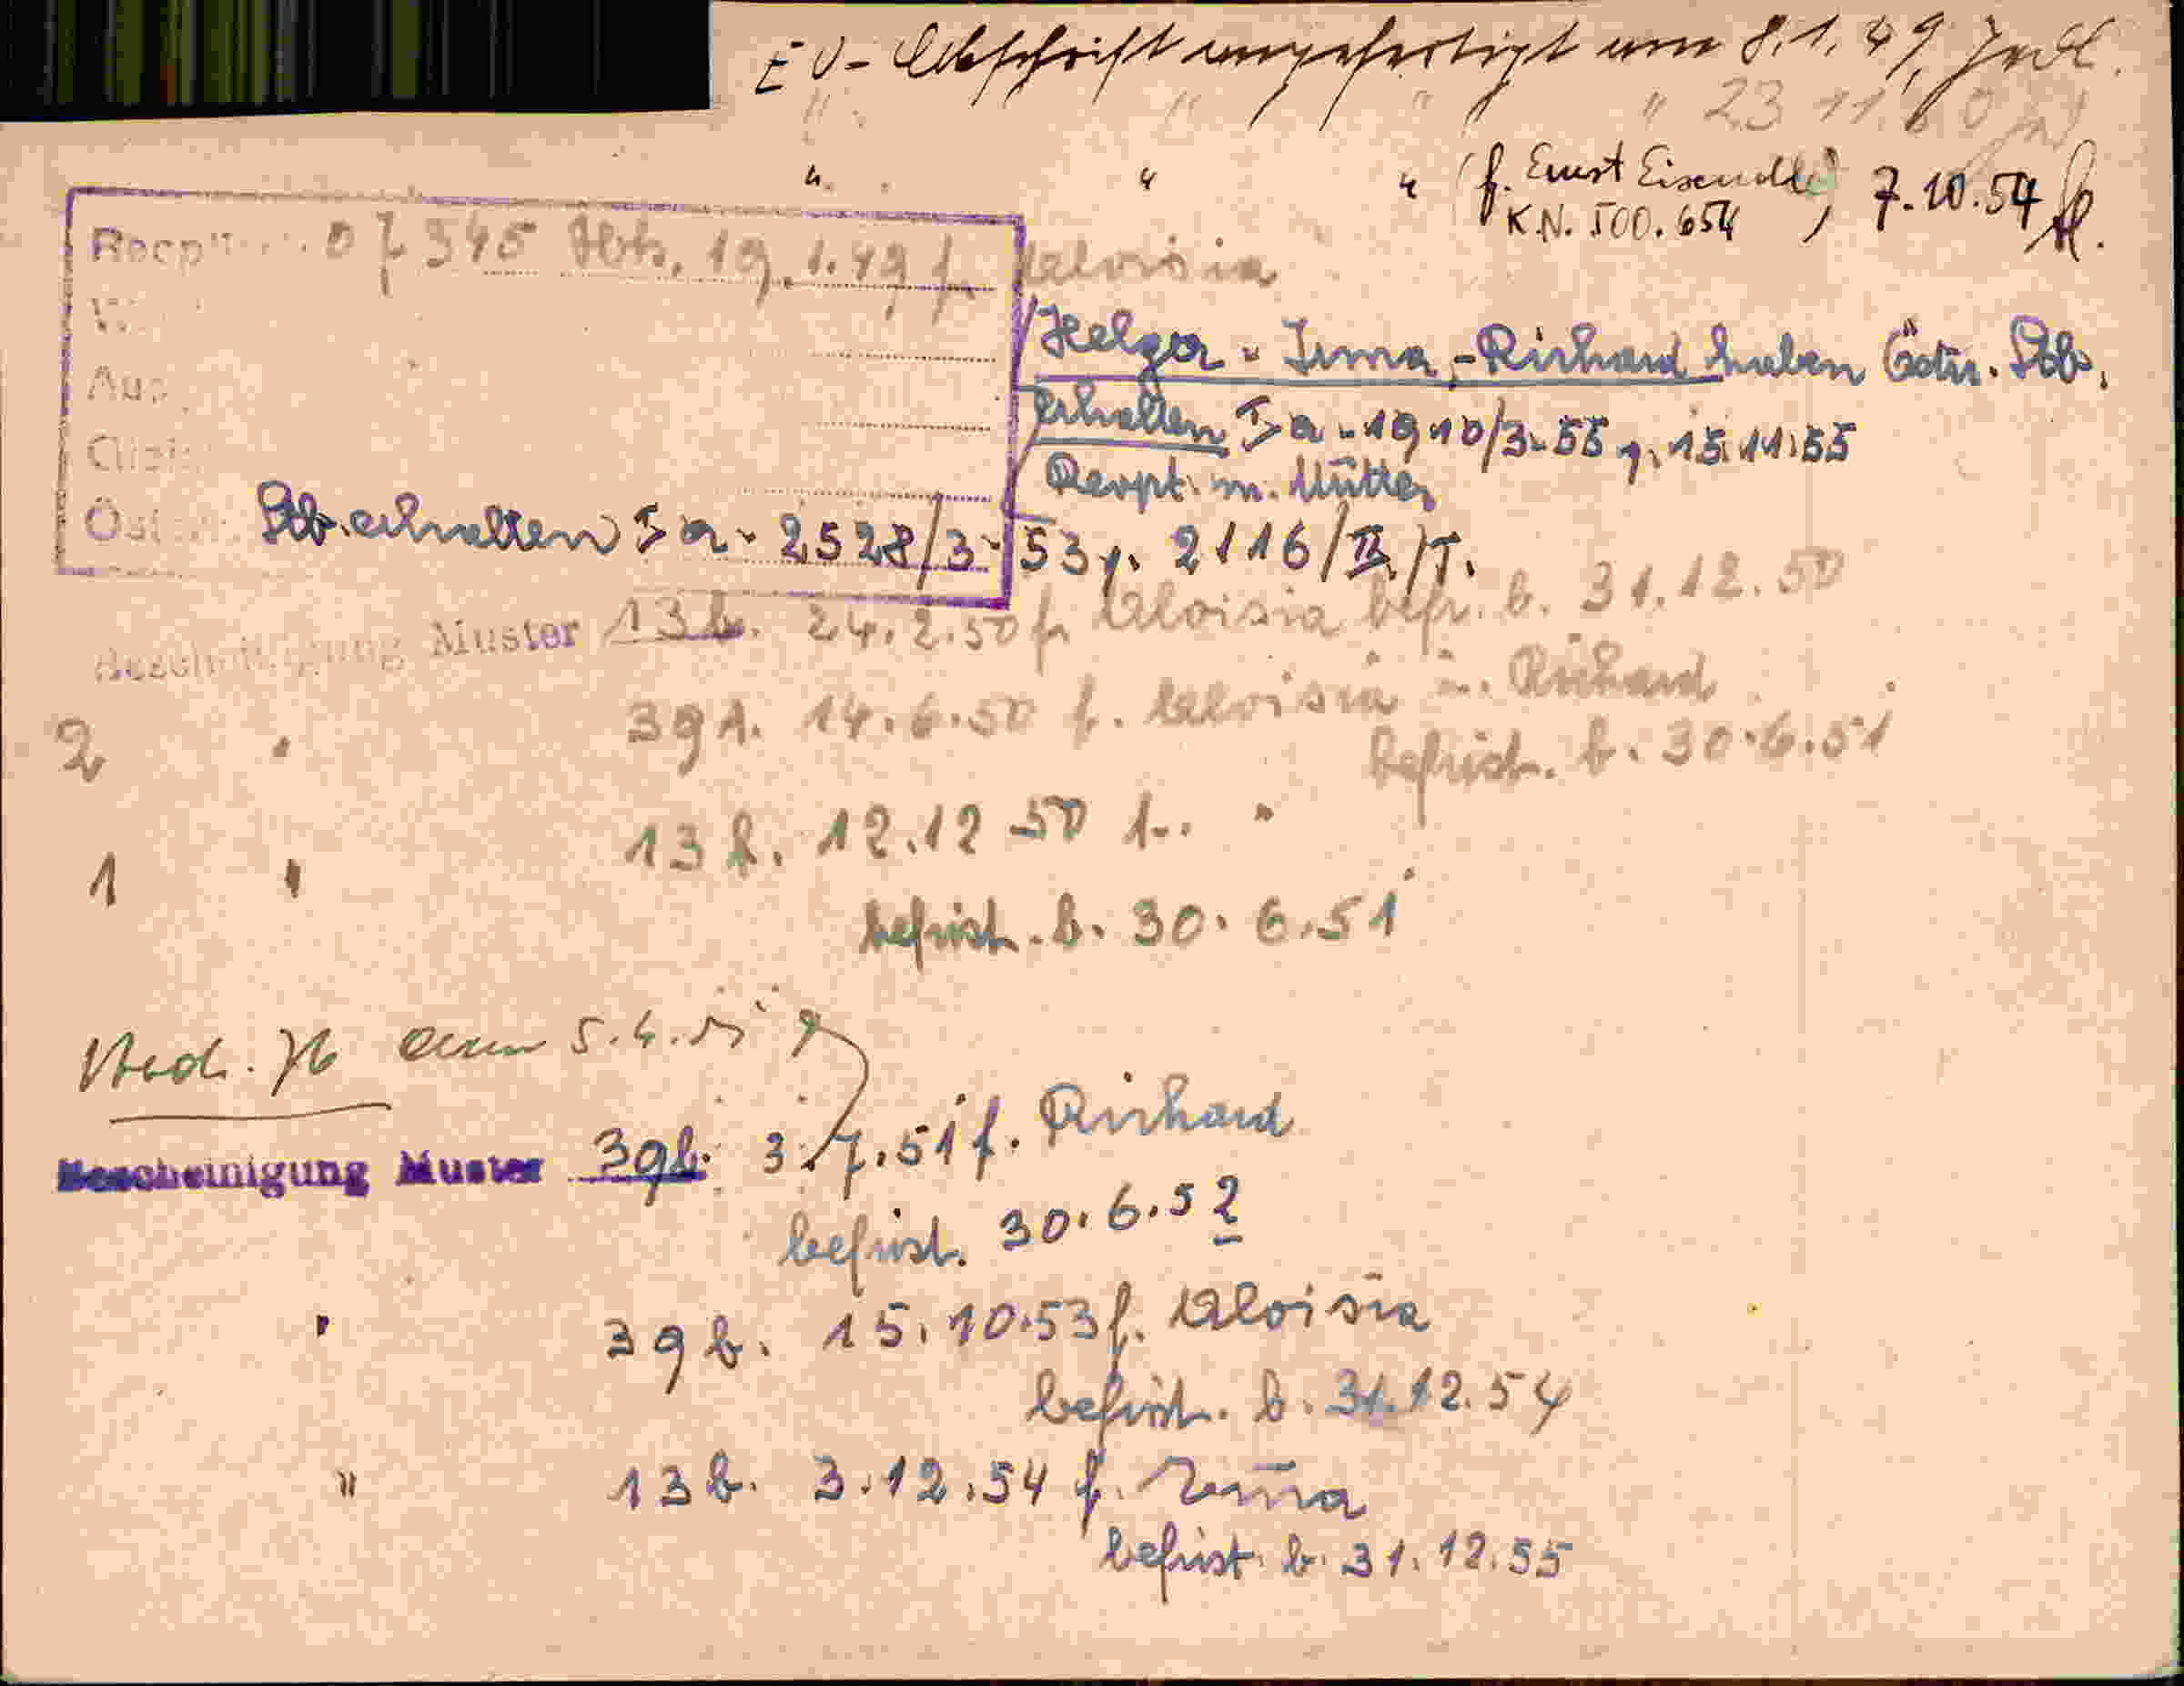 EU - Abschrift angefertigt am 8.1.49
" " " " 23 11.
" " " (f. Ernst
K.N. 500.654, 7.10.54
07345 19.1.49 f. Aloisia
Helga - Irma - Richard haben Östr. Stb.
erhalten I a - 1910/3-55 15.11.55
m. Mutter
Stb. erhalten I a - 2528/3-53 2116/II/T.
Bescheinigung Muster 13b. 24.2.50 f. Aloisia befr. b. 31.12.50
2 " 39 A. 14.6.50 f. Aloisia u. Richard
befrist. b. 30.6.51
1 " 13 b. 12.12 50 f. "
befrist. b. 30.6.51
am 5.4.
Bescheinigung Muster 39b. 3.7.51 f. Richard
befrist. 30.6.52
" 39 b. 15.10.53 f. Aloisia
befrist. b. 31.12.54
" 13 b. 3.12.54 f. Irma
befrist. b. 31.12.55